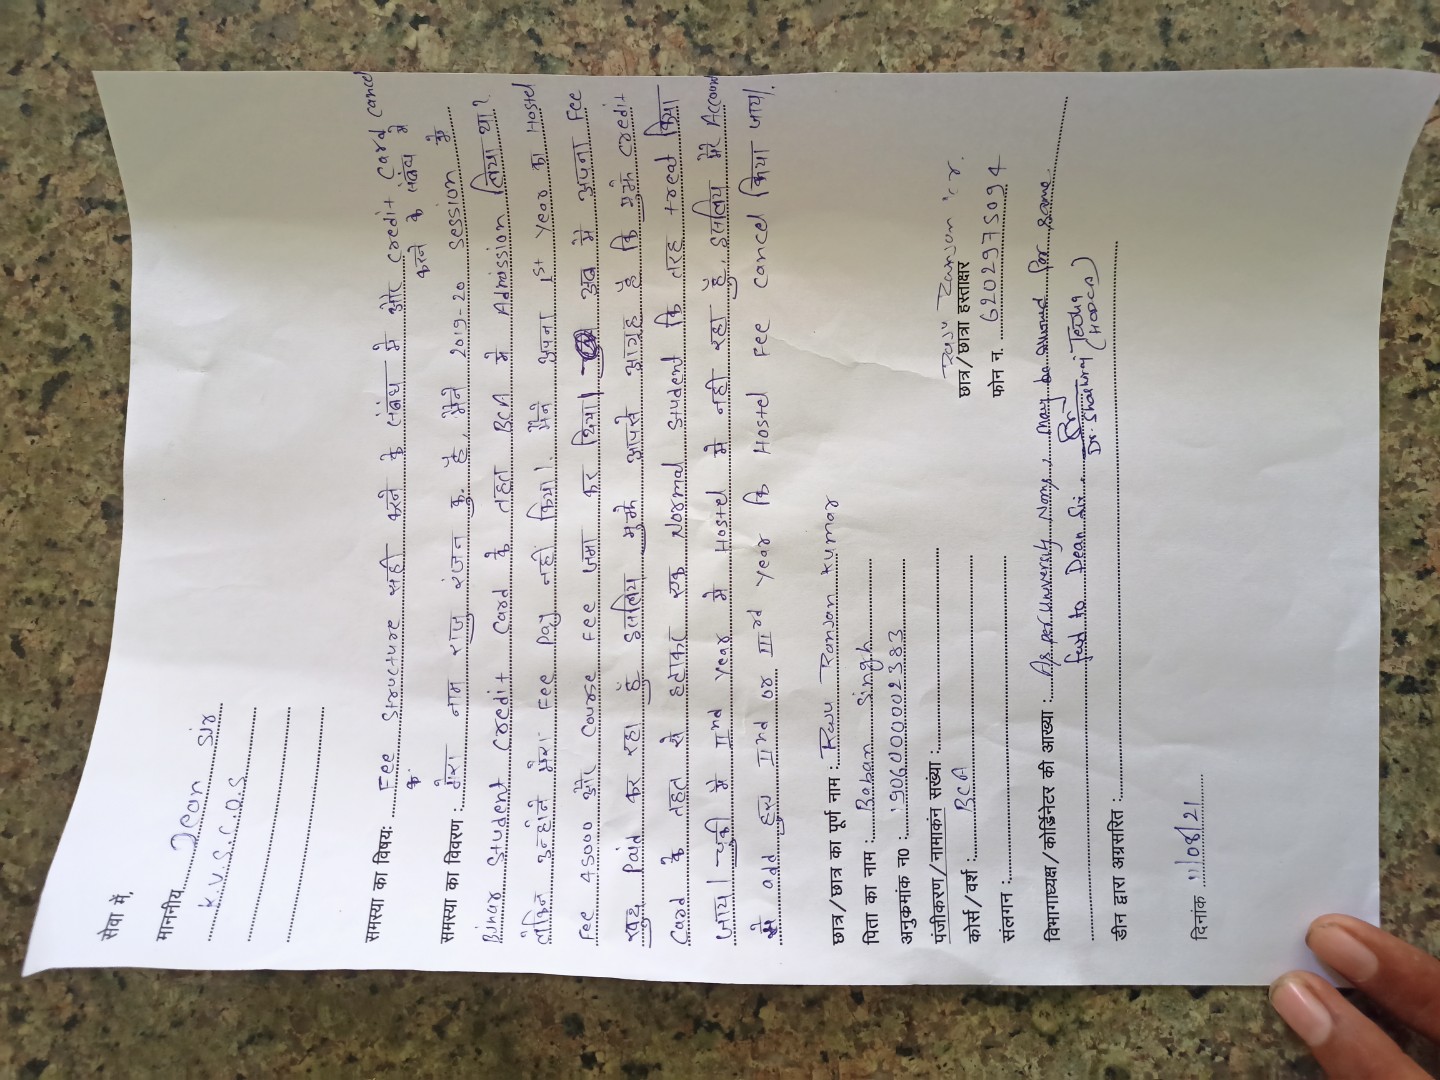 सेवा में,
माननीय Dean Sir
K.V.S.C.O.S
समस्या का विषयः Fee Structure सही करने के संबंध मे और Credit Card Cancel
करने के संबंध मे
समस्या का विवरण : मेरा नाम राजु रंजन कु. है, मैने 2019-20 session मे
Bihar Student Credit Card के तहत BCA मे Admission लिया था?
लेकिन उन्होने मेरा Fee Pay नही किया। मैने अपना 1st Year का Hostel
Fee 45000 और Course Fee जमा कर दिया। अब मै अपना Fee
खुद Paid कर रहा हुँ इसलिय मुझे आपसे आग्रह है कि मुझे Credit
Card के तहत से हटाकर एक Normal Student कि तरह treat किया
जाय। चुकी मै IInd Year मे Hostel मे नही रहा हुँ, इसलिय मेरे Account
से add हुए IInd or IIIrd Year कि Hostel Fee Cancel किया जाय।
छात्र/छात्र का पूर्ण नाम : Raju Ranjan Kumar
पिता का नाम : Baban Singh
अनुक्रमांक न0 : 1906000002383
पंजीकरण/नामाकंन सख्या :
कोर्स/वर्श : BCA
Raju Ranjan Kr.
छात्र/छात्रा हस्ताक्षर
संलगन :
फोन न. 6202975094
विभागाध्यक्ष/कोर्डिनेटर की आख्या : As per University Norms, may be allowed for same.
fwd to Dean Sir.
Dr. (HODCA)
डीन द्वारा अग्रसरित :
दिनांक 11/08/21